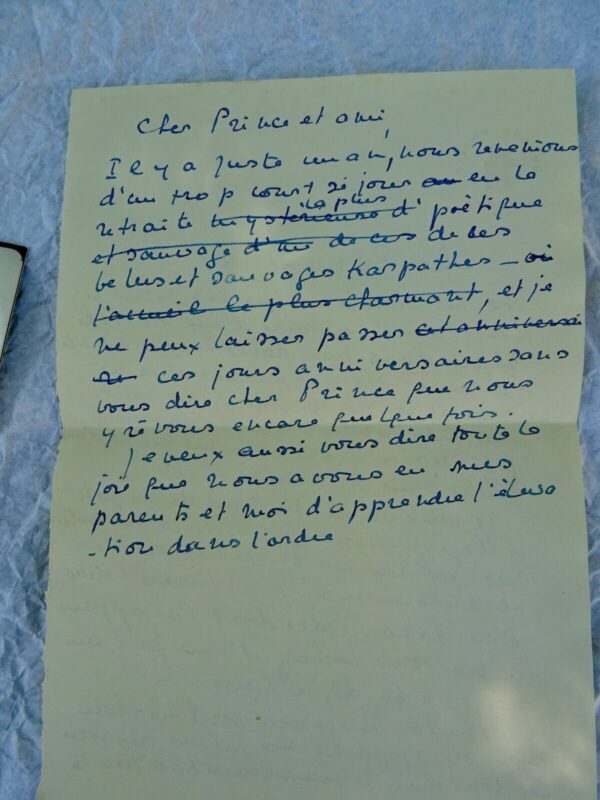 Cher Prince et ami,
Il y a juste un an, nous revenions
d'un trop court séjour au en la
retraite mystérieuse d' la plus poètique
et sauvage d'une de ces de ces
belles et sauvages Karpathes – où
l'accueil le plus charmant, et je
ne peux laisser passer cet anniversai
re ces jours anniversaires sans
vous dire cher Prince que nous
y rêvons encore quelque fois.
Je veux aussi vous dire toute la
joie que nous avons eu mes
parents et moi d'apprendre l'éleva
-tion dans l'ordre